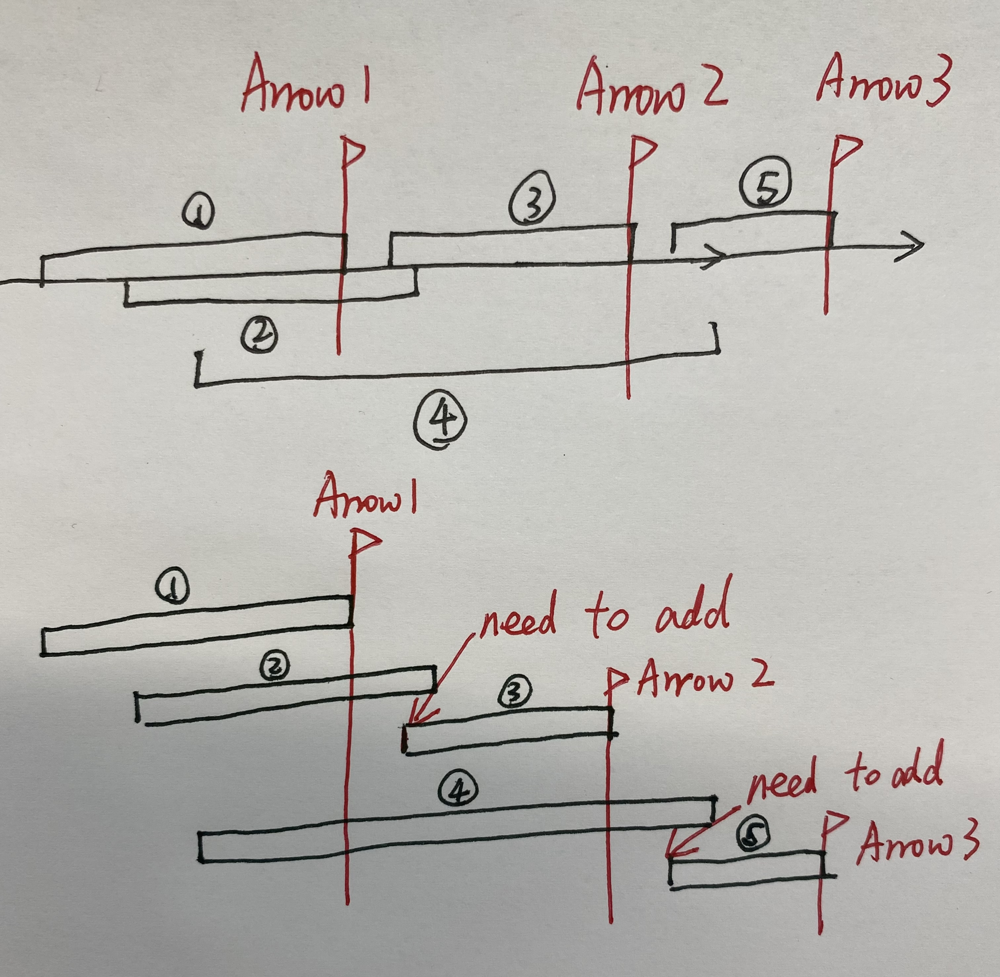 Arrow 1 Arrow 2 Arrow 3
① ③ ⑤
②
④
Arrow 1
①
need to add
②
③ Arrow 2
④ need to add
⑤ Arrow 3